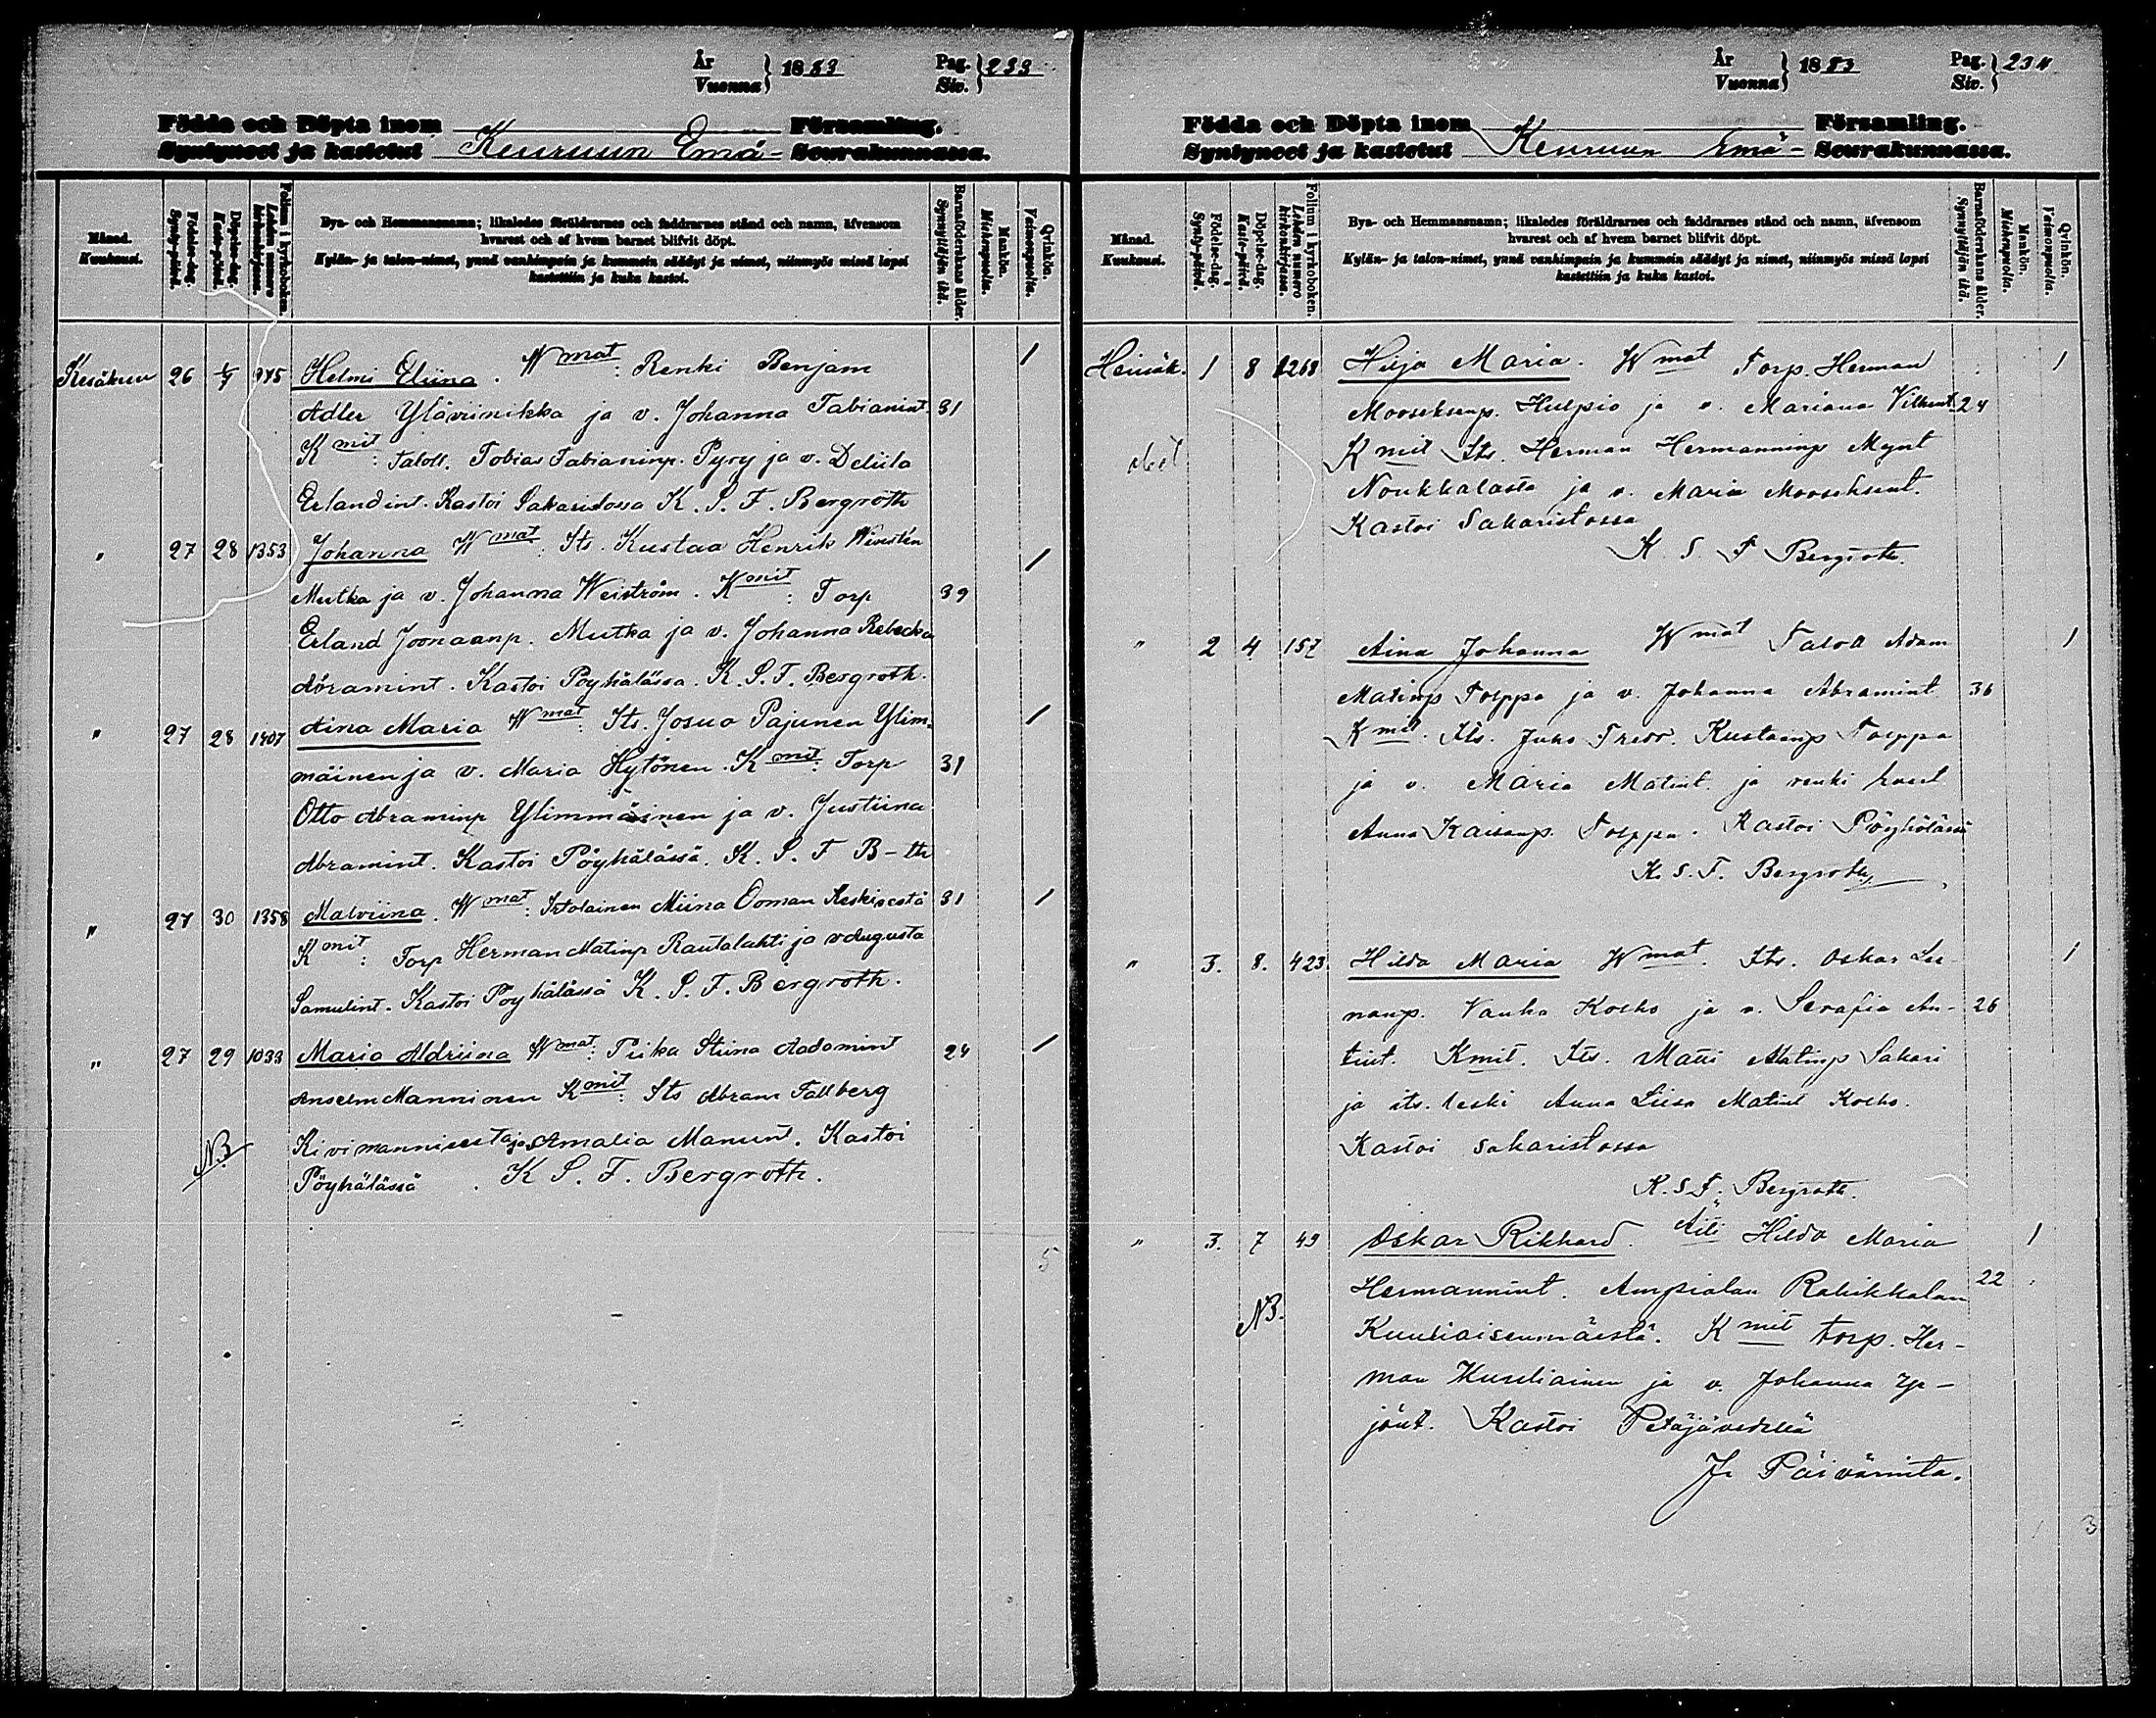 År
Vuonna } 1883
Pag.
Siv. } 233
Födda och Döpta inom Församling.
Syntyneet ja kastetut Keuruun Emä- Seurakunnassa.
Månad.
Kuukausi.
Födelse-dag.
Synty-päivä.
Döpelse-dag.
Kaste-päivä.
Folium i kyrkoboken.
Lehden numero kirkonkirjassa.
Bya- och Hemmansnamn; likaledes föräldrarnes och faddrarnes stånd och namn, äfvensom
hvarest och af hvem barnet blifvit döpt.
Kylän- ja talon-nimet, ynnä vanhimpain ja kummein säädyt ja nimet, niinmyös missä lapsi
kastettiin ja kuka kastoi.
Barnaföderskans ålder.
Synnyttäjän ikä.
Mankön.
Miehenpuolia.
Qvinkön.
Vaimonpuolia.
Kesäkuu 26 945 Helmi Eliina. Wmat: Renki Benjam 1
Adler Ylävinikka ja v. Johanna Fabianint. 31
Kmit: Taloll. Tobias Fabianinp. Pyry ja v. Deliila
Erlandint. Kastoi Sakaristossa K. S. F. Bergroth
" 27 28 1353 Johanna Wmat: Its. Kustaa Henrik 1
Mutka ja v. Johanna Weiström. Kmit: Torp 39
Erland Joonaanp. Mutka ja v. Johanna Rebecka
Abramint. Kastoi Pöyhälässä. K. S. F. Bergroth.
" 27 28 1407 Aina Maria Wmat: Its. Josua Pajunen Ylim- 1
mäinen ja v. Maria Hytönen. Kmit: Torp 31
Otto Abraminp Ylimmäinen ja v. Justiina
Abramint. Kastoi Pöyhälässä. K. S. F B-th
" 27 30 1358 Malviina. Wmat: Irtolainen Miina Ooman Keskisestä 31 1
Kmit: Torp Herman Matinp Rautalahti ja v Augusta
Samulint. Kastoi Pöyhälässä K. S. F. Bergroth.
" 27 29 1033 Maria Aldriina Wmat: Piika Stiina Aadamint 24 1
Anselm Manninen Kmit: Its Abram Fallberg
NB Kivimannisesta ja Amalia Manunt. Kastoi
Pöyhälässä. K S. F. Bergroth.
5
År
Vuonna } 1883
Pag.
Siv. } 234
Födda och Döpta inom Församling.
Syntyneet ja kastetut Keuruun Emä- Seurakunnassa.
Månad.
Kuukausi.
Födelse-dag.
Synty-päivä.
Döpelse-dag.
Kaste-päivä.
Folium i kyrkoboken.
Lehden numero kirkonkirjassa.
Bya- och Hemmansnamn; likaledes föräldrarnes och faddrarnes stånd och namn, äfvensom
hvarest och af hvem barnet blifvit döpt.
Kylän- ja talon-nimet, ynnä vanhimpain ja kummein säädyt ja nimet, niinmyös missä lapsi
kastettiin ja kuka kastoi.
Barnaföderskans ålder.
Synnyttäjän ikä.
Mankön.
Miehenpuolia.
Qvinkön.
Vaimonpuolia.
Heinäk. 1 8 1268 Hilja Maria. Wmat Torp. Herman 1
Mooseksenp. Hulpio ja v. Mariana Vilhent. 24
Kmit Its. Herman Hermanninp Mynt
Noukkalasta ja v. Maria Mooseksent.
Kastoi Sakaristossa
K S F Bergroth.
" 2 4 157 Aina Johanna Wmat Taloll Adam 1
Matinp Torppa ja v. Johanna Abramint 36
Kmit. Its. Juho Fredr. Kustainp Torppa
ja v. Maria Matint. ja renki
Anna Kaisanp. Torppa. Kastoi Pöyhölässä
K. S. F. Bergroth
" 3. 8. 423 Hilda Maria Wmat. Its. Oskar Lee- 1
nanp. Vanha Kosho ja v. Serafia An- 26
tint. Kmit. Its. Matti Matinp Sakari
ja its. leski Anna Liisa Matint Kosho.
Kastoi Sakaristossa
K. S. F. Bergroth.
" 3. 7 49 Oskar Rikhard. Äiti Hilda Maria 1
Hermannint. Ampialan Rahikkalan 22
NB. Kuuliaisenmäestä. Kmit torp. Her-
man Kuuliainen ja v. Johanna Yr-
jönt. Kastoi Petäjävedellä
J. Päivärinta.
3